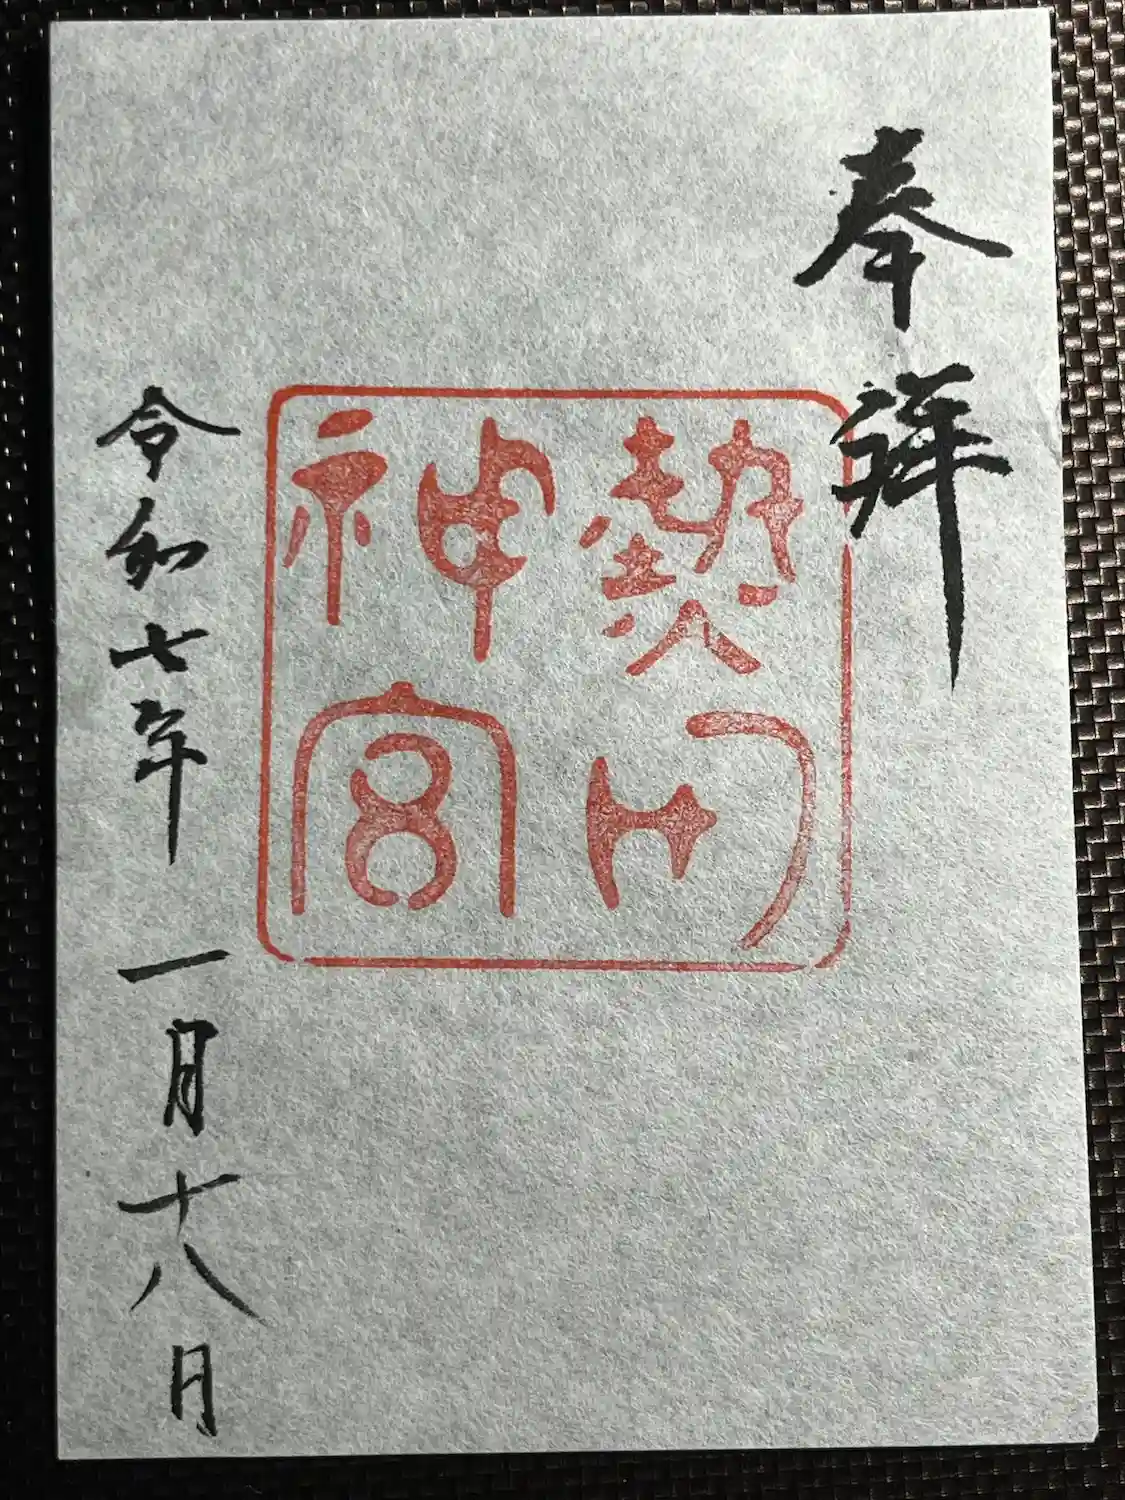 奉拝
熱田
神宮
令和七年一月十八日